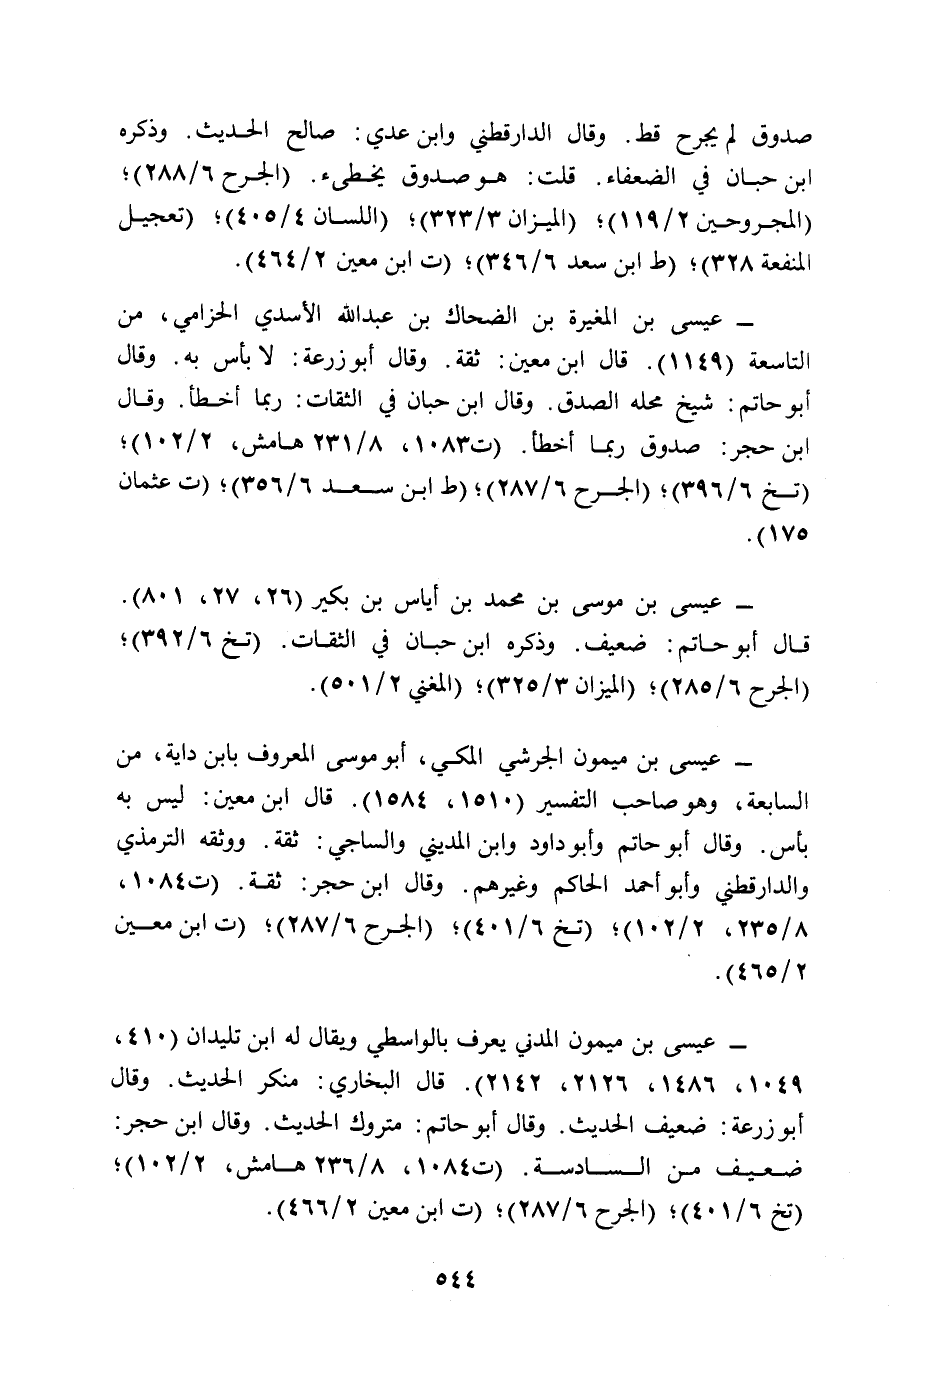 صدوق لم يجرح قط. وقال الدارقطني وابن عدي: صالح الحديث. وذكره
ابن حبان في الضعفاء. قلت: هو صدوق يخطىء. (الجرح ٢٨٨/٦)؛
(المجروحين ١١٩/٢)؛ (الميزان ٣٢٣/٣)؛ (اللسان ٤٠٥/٤)؛ (تعجيل
المنفعة ٣٢٨)؛ (ط ابن سعد ٣٤٦/٦)؛ (ت ابن معين ٤٦٤/٢).
ــ عيسى بن المغيرة بن الضحاك بن عبدالله الأسدي الحزامي، من
التاسعة (١١٤٩). قال ابن معين: ثقة. وقال أبو زرعة: لا بأس به. وقال
أبو حاتم: شيخ محله الصدق. وقال ابن حبان في الثقات: ربما أخطأ. وقال
ابن حجر: صدوق ربما أخطأ. (ت١٠٨٣، ٢٣١/٨ هامش، ١٠٢/٢)؛
(تخ ٣٩٦/٦)؛ (الجرح ٢٨٧/٦)؛ (ط ابن سعد ٣٥٦/٦)؛ (ت عثمان
١٧٥).
ــ عيسى بن موسى بن محمد بن أياس بن بكير (٢٦، ٢٧، ٨٠١).
قال أبو حاتم: ضعيف. وذكره ابن حبان في الثقات. (تخ ٣٩٢/٦)؛
(الجرح ٢٨٥/٦)؛ (الميزان ٣٢٥/٣)؛ (المغني ٥٠١/٢).
ــ عيسى بن ميمون الجرشي المكي، أبو موسى المعروف بابن داية، من
السابعة، وهو صاحب التفسير (١٥١٠، ١٥٨٤). قال ابن معين: ليس به
بأس. وقال أبو حاتم وأبو داود وابن المديني والساجي: ثقة. ووثقه الترمذي
والدارقطني وأبو أحمد الحاكم وغيرهم. وقال ابن حجر: ثقة. (ت١٠٨٤،
٢٣٥/٨، ١٠٢/٢)؛ (تخ ٤٠١/٦)؛ (الجرح ٢٨٧/٦)؛ (ت ابن معين
٤٦٥/٢).
ــ عيسى بن ميمون المدني يعرف بالواسطي ويقال له ابن تليدان (٤١٠،
١٠٤٩، ١٤٨٦، ٢١٢٦، ٢١٤٢). قال البخاري: منكر الحديث. وقال
أبو زرعة: ضعيف الحديث. وقال أبو حاتم: متروك الحديث. وقال ابن حجر:
ضعيف من السادسة. (ت١٠٨٤، ٢٣٦/٨ هامش، ١٠٢/٢)؛
(تخ ٤٠١/٦)؛ (الجرح ٢٨٧/٦)؛ (ت ابن معين ٤٦٦/٢).
٥٤٤